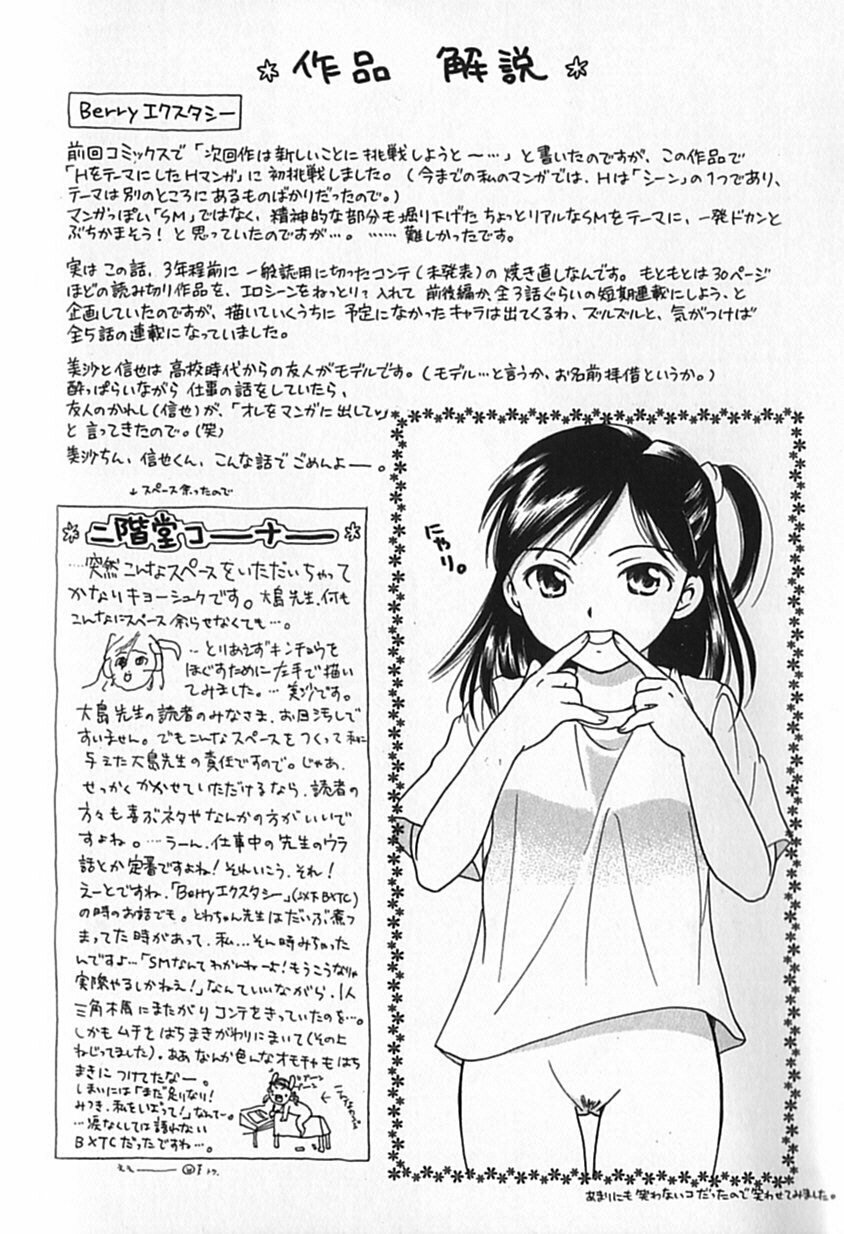 ＊作品 解説＊
Berryエクスタシー
前回コミックスで「次回作は新しいことに挑戦しようと〜…」と書いたのですが、この作品で
「Hをテーマにした Hマンガ」に 初挑戦しました。(今までの私のマンガでは、Hは「シーン」の1つであり、
テーマは別のところにあるものばかりだったので。)
マンガっぽい「SM」ではなく、精神的な部分も堀り下げた ちょっとリアルなSMをテーマに、一発ドカンと
ぶちかまそう! と思っていたのですが…。 …… 難しかったです。
実は この話、3年程前に 一般読用に切ったコンテ(未発表)の 焼き直しなんです。もともとは30ページ
ほどの読み切り作品を、エロシーンをねっとりっ入れて 前後編か、全3話ぐらいの短期連載にしよう、と
企画していたのですが、描いていくうちに 予定になかったキャラは出てくるわ、ズルズルと、気がつけば
全5話の連載になっていました。
美沙と信也は 高校時代からの友人がモデルです。(モデル…と言うか、お名前拝借というか。)
酔っぱらいながら 仕事の話をしていたら、
友人のかれし(信也)が、「オレをマンガに出して」
と 言ってきたので。(笑)
美沙ちん、信也くん、こんな話で ごめんよー。
↓スペース余ったので
＊二階堂コーナー＊
……突然こんなスペースをいただいちゃって
かなりキョーシュクです。大島先生、何も
こんなにスペース 余らせなくても…。
…とりあえずキンチョウを
ほぐすために左手で描い
てみました。…美沙です。
大島先生の読者のみなさま、お目汚しで
すいません。でもこんなスペースをつくって私に
与えた大島先生の責任ですので。じゃあ、
せっかくかかせていただけるなら、読者の
方々も喜ぶネタやなんかの方がいいで
すよね。…うーん、仕事中の先生のウラ
話とか定番ですよね! それいこう、それ!
えーとですね、「Berryエクスタシー」(以下BXTC)
の時のお話でも。とわちゃん先生はだいぶ煮つ
まってた時があって、私…そん時みちゃった
んですよ…「SMなんてわかんねーよ!もうこうなりゃ
実際やるしかねえ!」なんていいながら、1人
三角木馬にまたがり コンテをきっていたのを…。
しかもムチをはちまきがわりにまいて(その上
ねじってました)。ああ なんか色んなオモチャもはち
まきに つけてたなー。
しまいには「まだ足りない!
みつき、私をしばって!」なんてー。
…涙なくしては語れない
BXTCだったですね…。
にやり。
あまりにも 笑わないコ だったので 笑わせてみました。